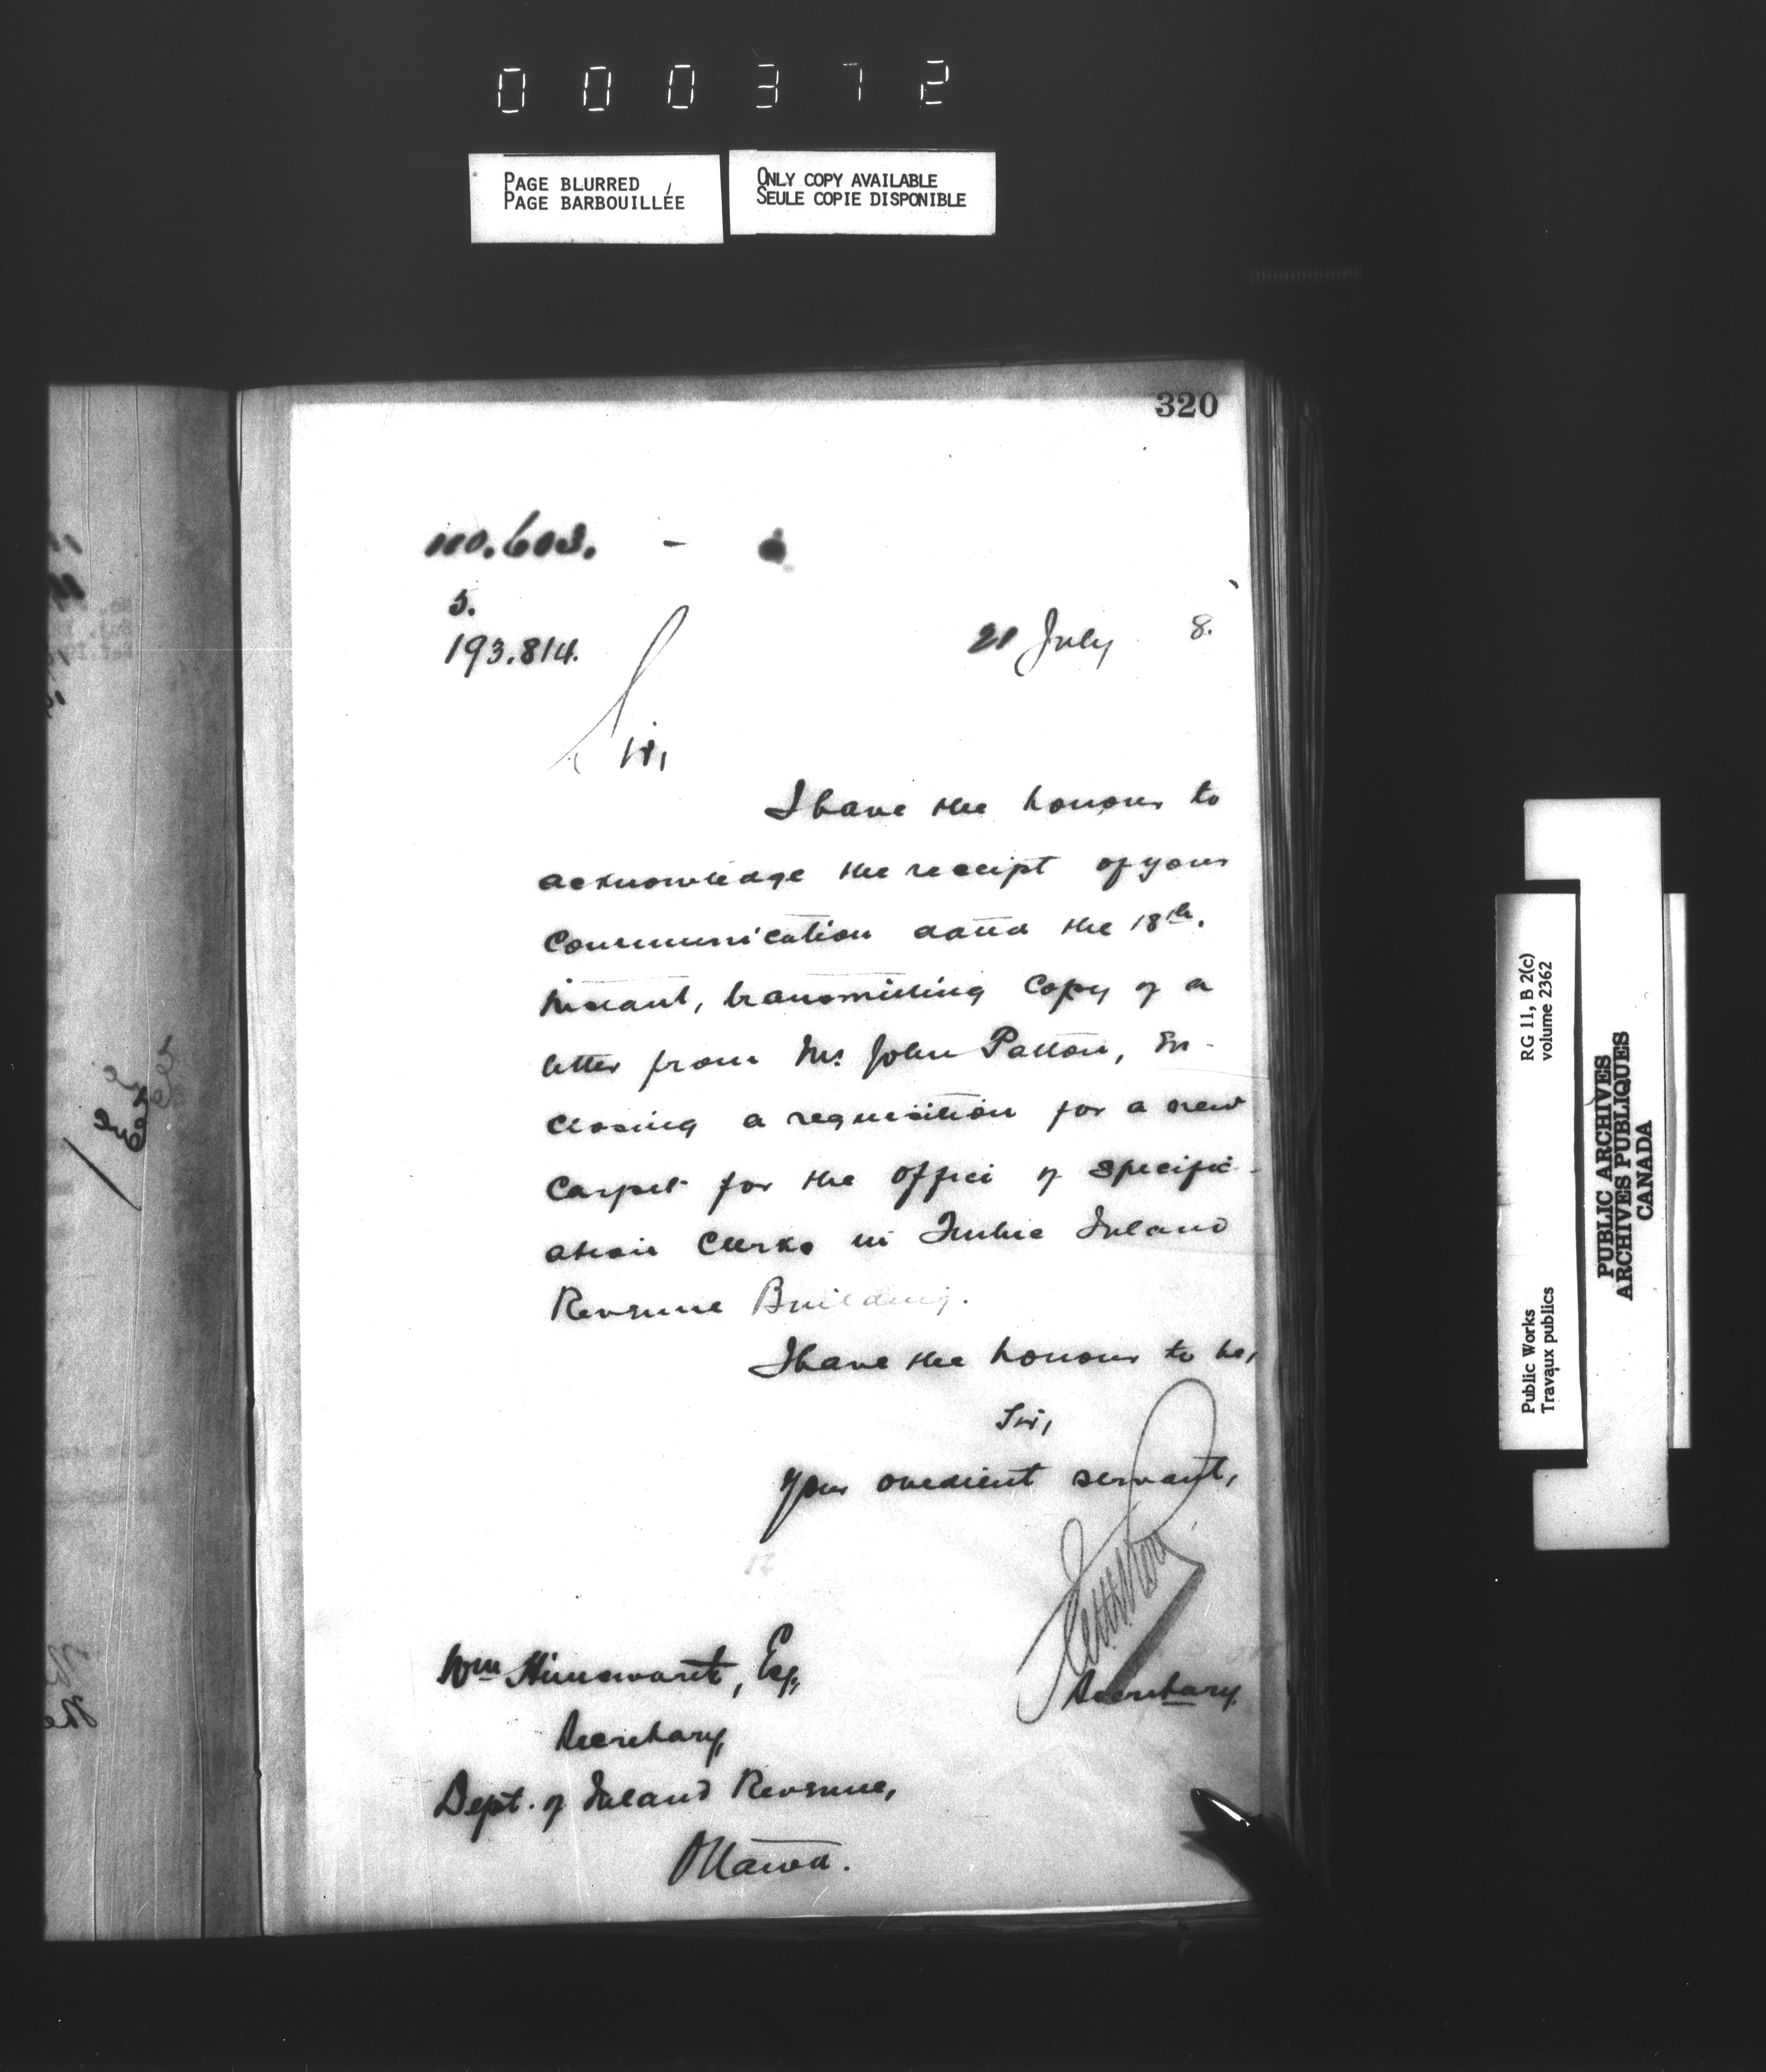 000372
PAGE BLURRED
PAGE BARBOUILLÉE
ONLY COPY AVAILABLE
SEULE COPIE DISPONIBLE
320
no. 603. -
5.
193.814.
21 July 8.
Sir,
I have the honour to
acknowledge the receipt of your
communication dated the 18th.
instant, transmitting copy of a
letter from Mr John Patton, en-
closing a requisition for a new
carpet for the office of specific-
ation clerks in Quebec Inland
Revenue Building.
I have the honour to be,
Sir,
Your obedient servant,
Secretary.
Wm Himsworth, Esq,
Secretary,
Dept. of Inland Revenue,
Ottawa.
RG 11, B 2(c)
volume 2362
Public Works
Travaux publics
PUBLIC ARCHIVES
ARCHIVES PUBLIQUES
CANADA